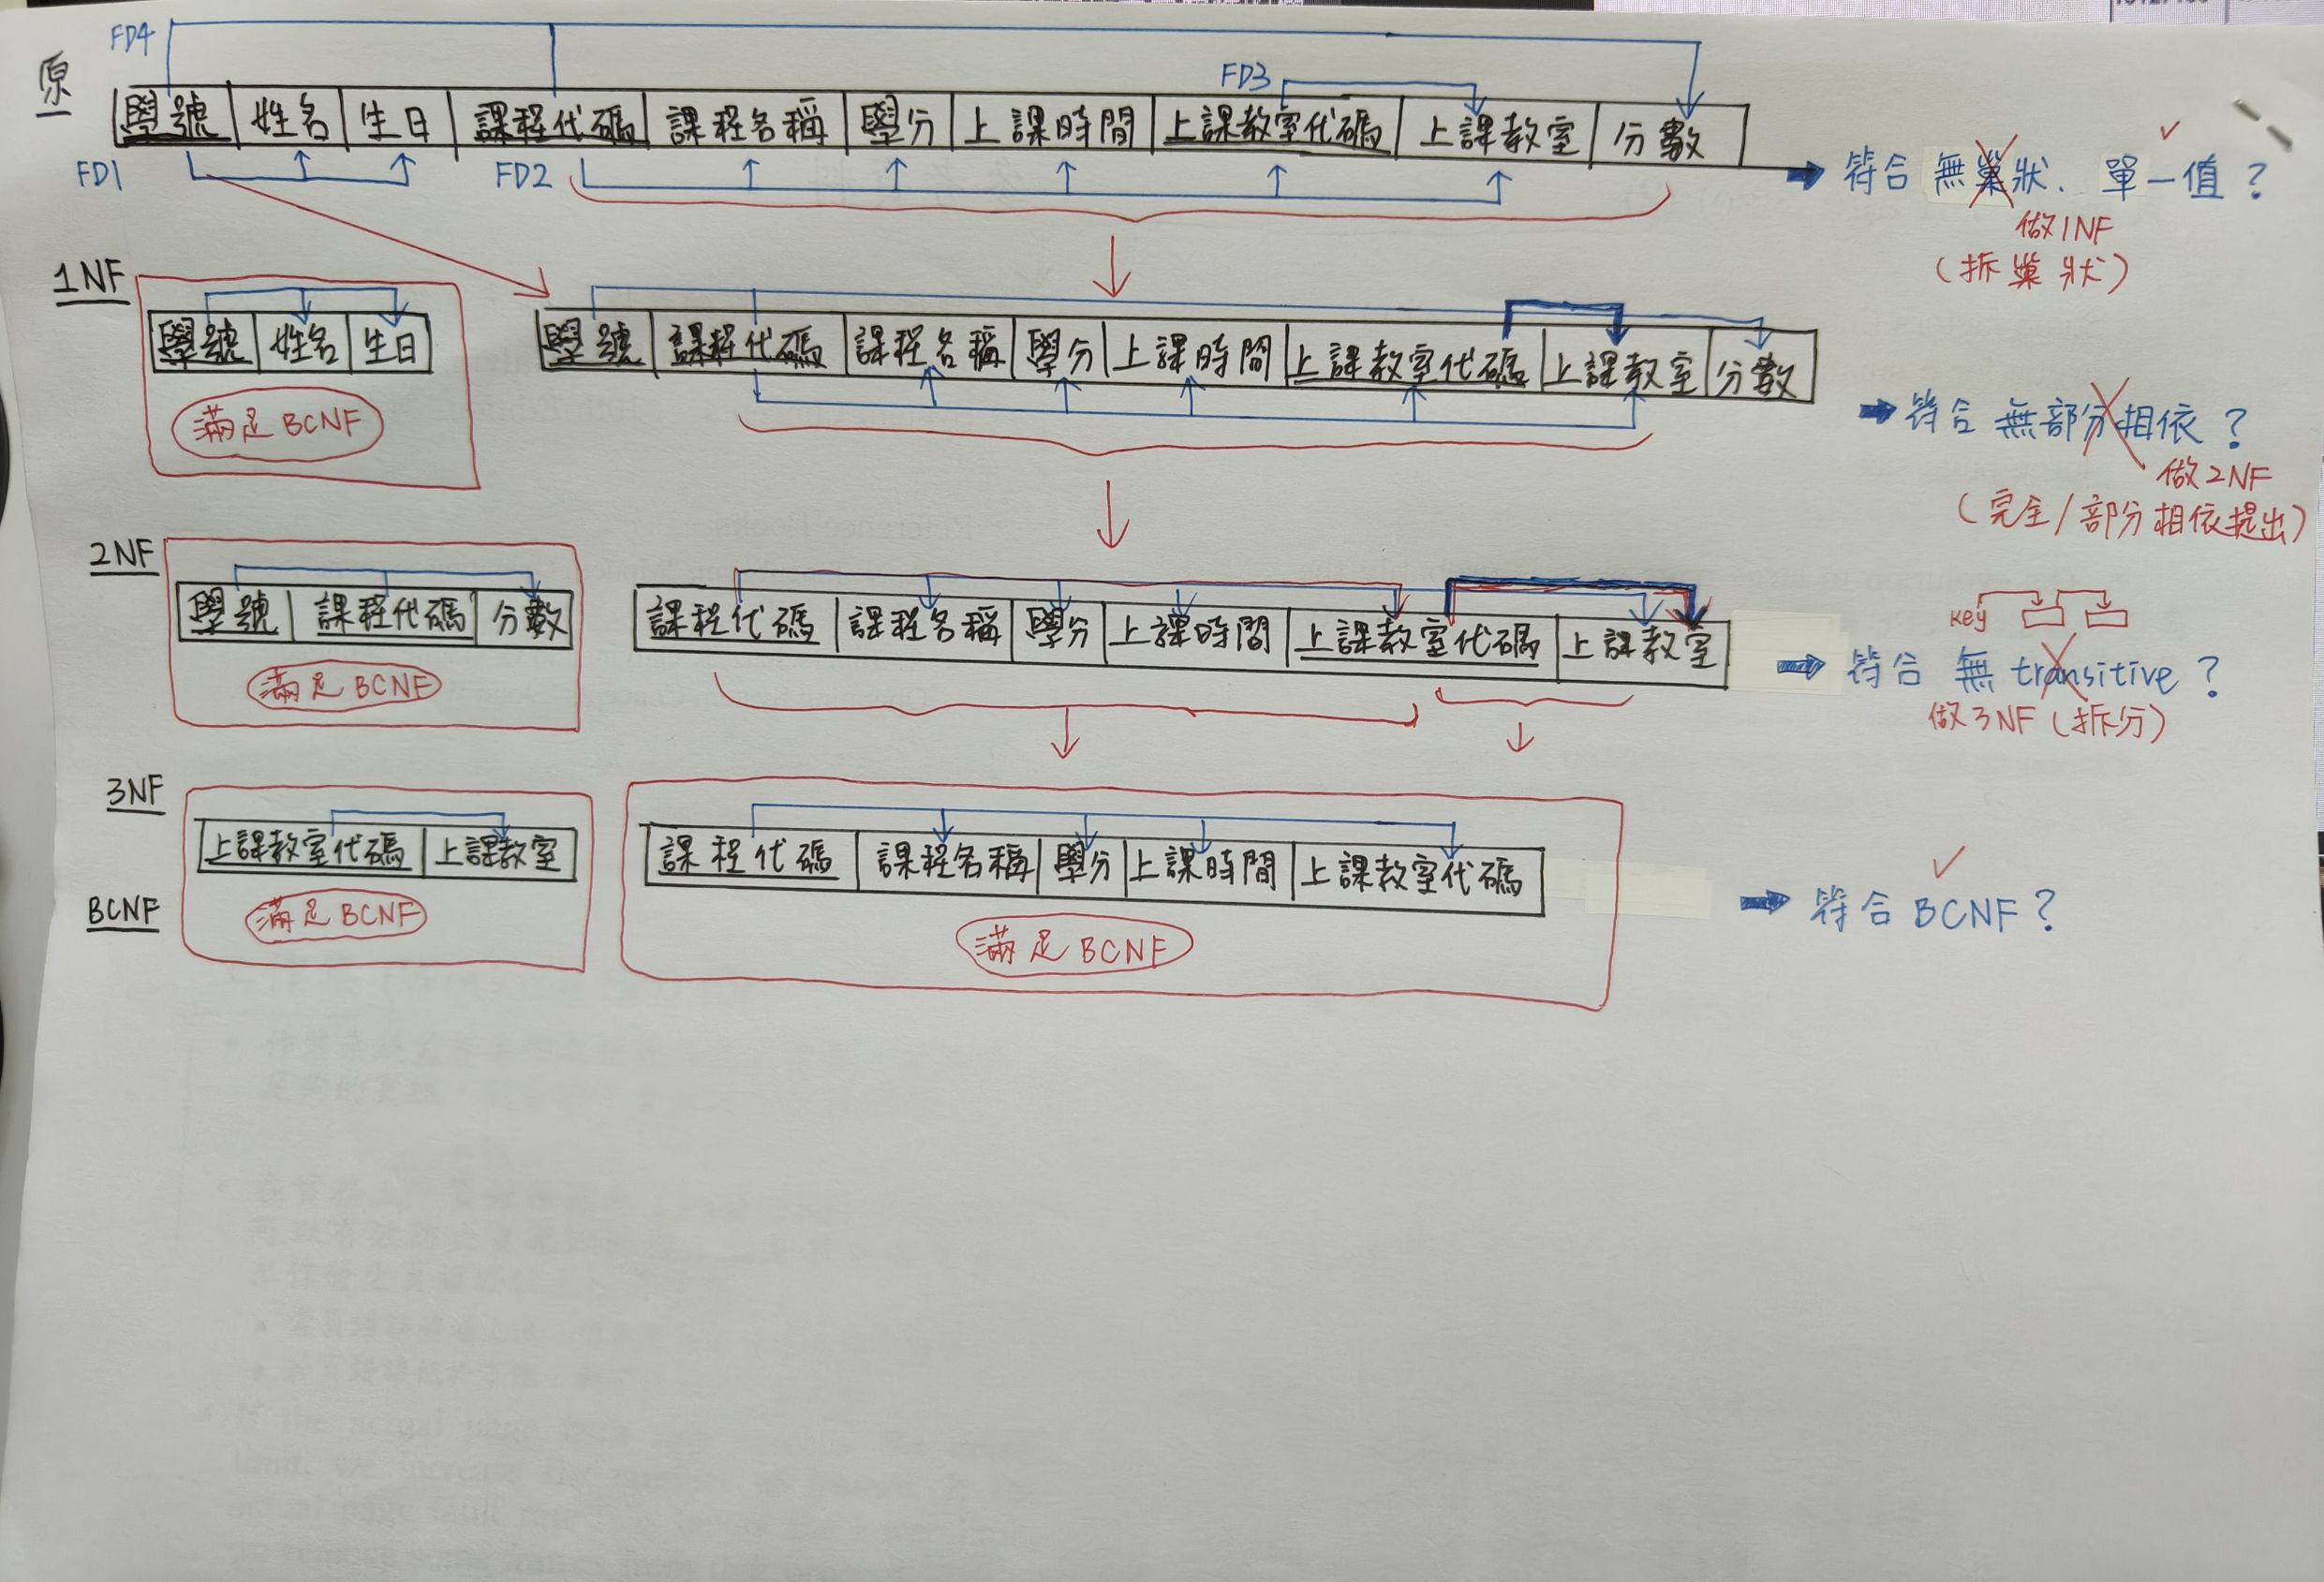 FD4
FD3
原
學號 姓名 生日 課程代碼 課程名稱 學分 上課時間 上課教室代碼 上課教室 分數
FD1
FD2
符合 無巢狀. 單一值?
做1NF
(拆巢狀)
1NF
學號 姓名 生日
滿足BCNF
學號 課程代碼 課程名稱 學分 上課時間 上課教室代碼 上課教室 分數
符合 無部分相依?
做2NF
(完全/部分相依提出)
2NF
學號 課程代碼 分數
滿足BCNF
課程代碼 課程名稱 學分 上課時間 上課教室代碼 上課教室
key
符合 無 transitive?
做3NF(拆分)
3NF
上課教室代碼 上課教室
滿足BCNF
課程代碼 課程名稱 學分 上課時間 上課教室代碼
滿足BCNF
BCNF
符合BCNF?